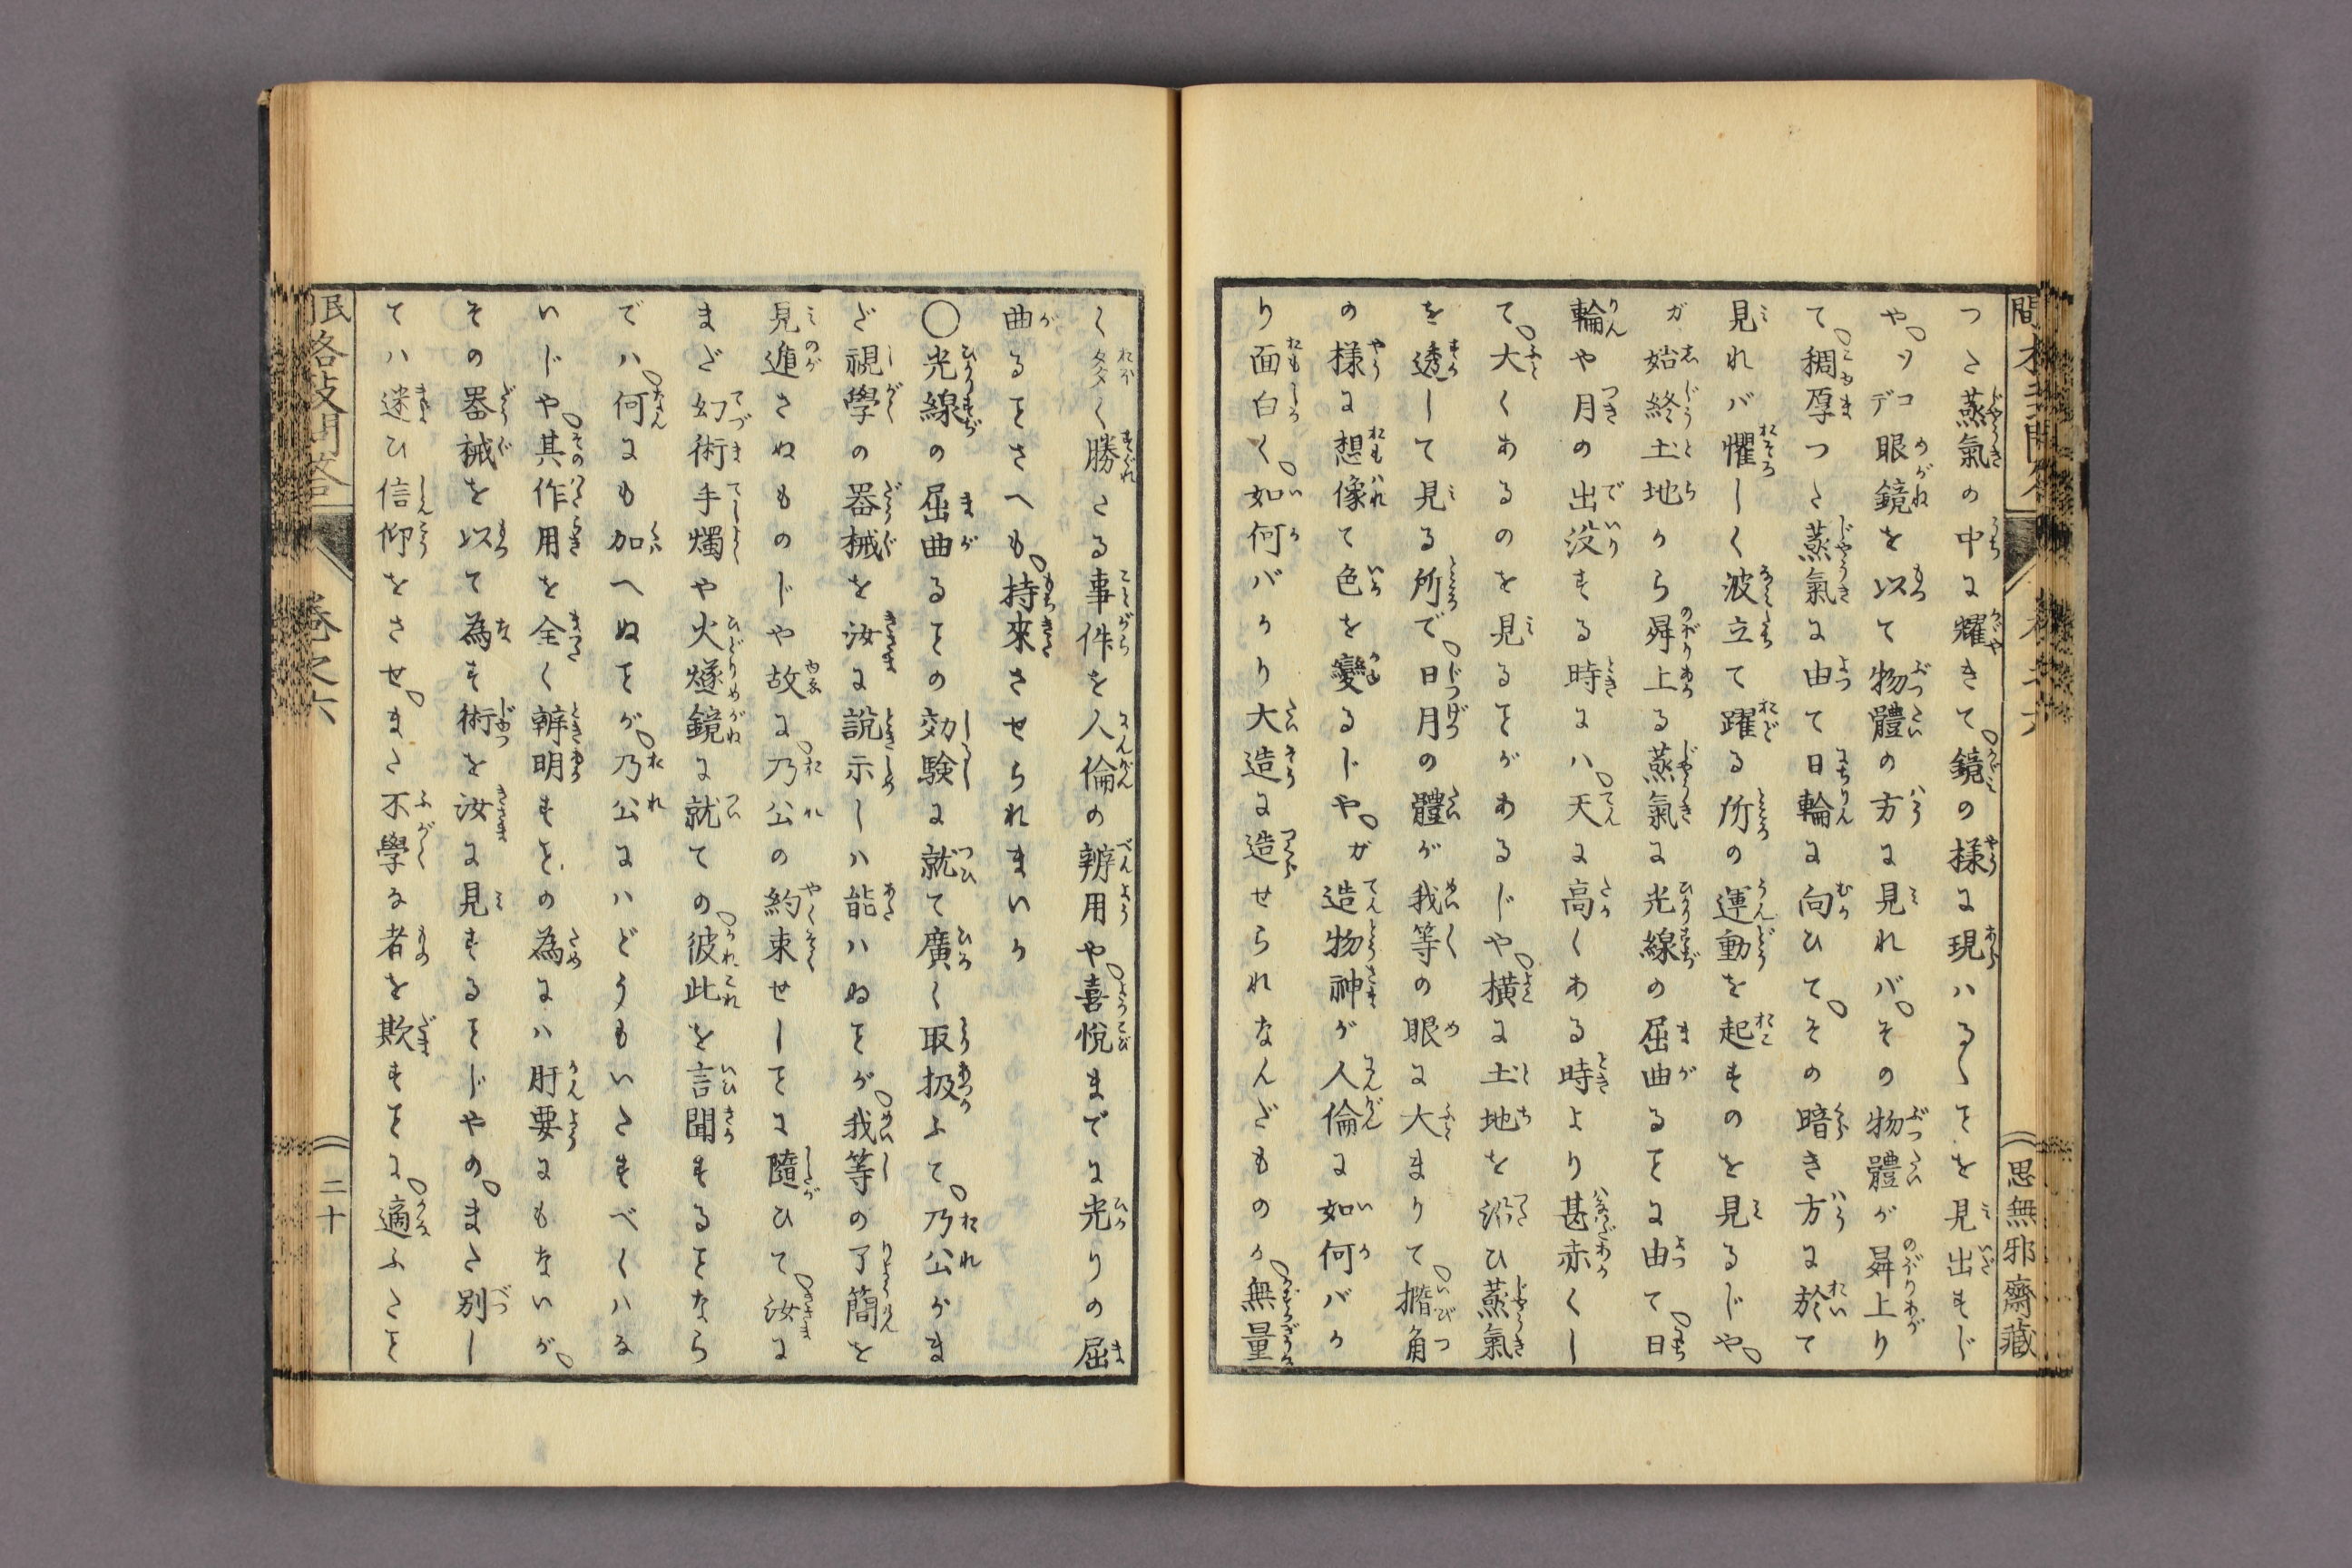 つた蒸氣の中に耀きて鏡の様に現ハるゝヿを見出もじ
や、ソコデ眼鏡を以て物體の方に見れバ、その物體が舜上り
て、稠厚つた蒸氣に由て日輪に向ひて、その暗き方に於て
見れバ懼しく波立て躍る所の運動を起すのを見るじや、
ガ始終土地から舜上る蒸氣に光線の屈曲るヿに由て、日
輪や月の出没する時にハ、天に高くある時より甚赤くし
て、大くあるのを見るヿがあるじや、横に土地を沿ひ蒸氣
を透して見る所で、日月の體が我等の眼に大まりて、撱角
の様に想像て色を變るじや、ガ造物神が人倫に如何バか
り面白く、如何バかり大造に造せられなんだものか、無量
思無邪齋藏
く多く勝たる事件を人倫の辨用や、喜悅までに光りの屈
曲るヿさへも、持來させられまいか
〇光線の屈曲るヿの効驗に就て廣く取扱ふて、乃公がま
だ視學の器械を汝に說示しハ能ハぬヿが、我等の了簡を
見遁さぬものじや故に、乃公の約束せしヿに隨ひて、汝に
まだ幻術手燭や火燧鏡に就ての、彼此を言聞するヿなら
でハ、何にも加へぬヿが、乃公にハどうもいたすべくハな
いじや、其作用を全く辨明すヿの為にハ肝要にもないが、
その器械を以て為す術を汝に見するヿじやの、また別し
てハ迷ひ信仰をさせ、また不學な者を欺すヿに、適ふたヿ
民格致問答
巻之六
二十